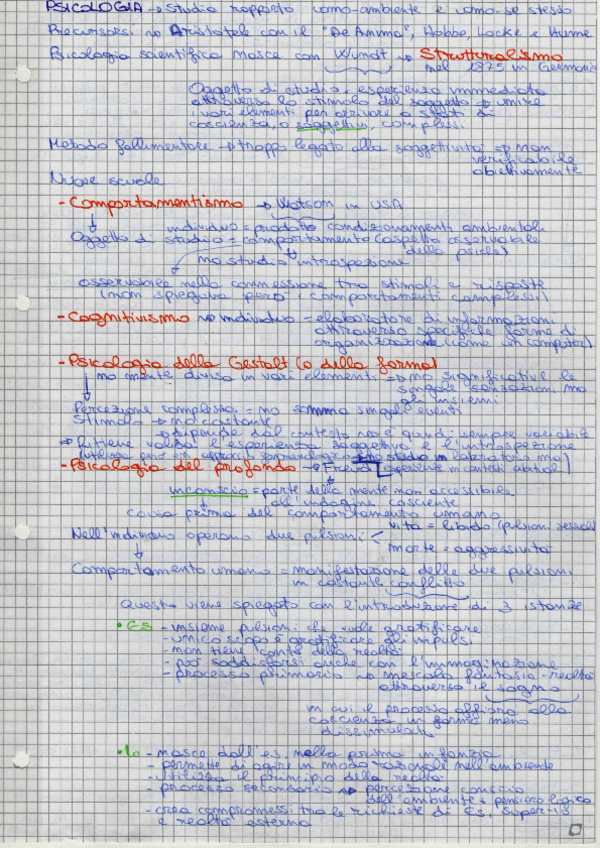 PSICOLOGIA → studio rapporto uomo-ambiente e uomo-se stesso
Precursori → Aristotele con il "De Anima", Hobbe, Locke e Hume
Psicologia scientifica nasce con Wundt → Strutturalismo
nel 1875 in Germania
Oggetto di studio: esperienza immediata
attraverso lo stimolo del soggetto → unire
i vari elementi per arrivare a stati di
coscienza, o soggettivi, complessi
Metodo fallimentare → troppo legato alla soggettività → non
verificabile
obiettivamente
Nuove scuole
- Comportamentismo → Watson in USA
individuo = prodotto condizionamenti ambientali
Oggetto di studio = comportamento (aspetto osservabile
della psiche)
no studio introspezione
osservabile nella connessione tra stimoli e risposte
(non spiegava però i comportamenti complessi)
- Cognitivismo → individuo = elaboratore di informazioni
attraverso specifiche forme di
organizzazione (come un computer)
- Psicologia della Gestalt (o della forma)
no mente divisa in vari elementi → no significative le
singole sensazioni, ma
gli insiemi
Percezione complessa = no somma singoli eventi
Stimolo → no costante
→ dipende dal contesto ed è quindi sempre variabile
→ Ritiene valida l'esperienza soggettiva e l'introspezione
(utilizza però un approccio fenomenologico → no studio in laboratorio, ma)
- Psicologia del profondo → Freud esperienze in contesti abituali
inconscio = parte della mente non accessibile
all'indagine cosciente
Causa prima del comportamento umano
vita = libido (pulsioni sessuali)
Nell'individuo operano due pulsioni <
morte = aggressività
Comportamento umano = manifestazione delle due pulsioni
in costante conflitto
Questo viene spiegato con l'introduzione di 3 istanze
• Es - insieme pulsioni che vuole gratificare
- unico scopo è gratificare gli impulsi
- non tiene conto della realtà
- può soddisfarsi anche con l'immaginazione
- processo primario → mescola fantasia-realtà
attraverso il sogno
in cui il processo affiora alla
coscienza in forma meno
dissimulata
• Io - nasce dall'es, nella prima infanzia
- permette di agire in modo razionale nell'ambiente
- utilizza il principio della realtà
- processo secondario → percezione conscia
dell'ambiente + pensiero logico
- crea compromessi tra le richieste di Es, Super-io
e realtà esterna